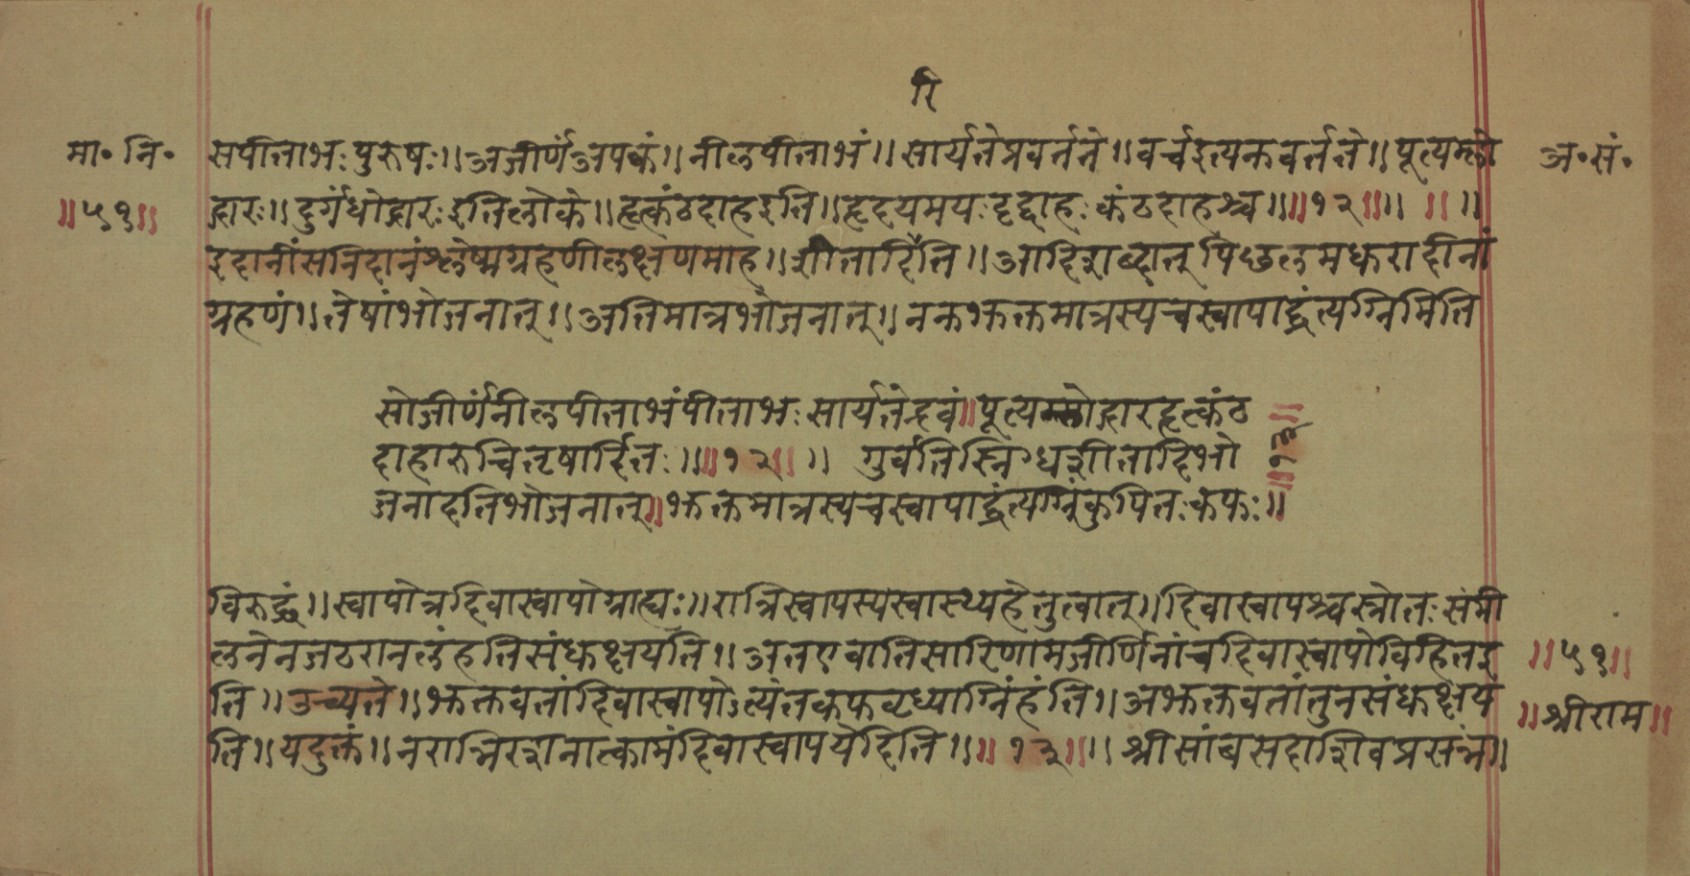 रि
मा॰ नि॰ सपीताभः पुरुषः॥ अजीर्णंअपक्वं॥ नीलपीताभं॥ सार्यतेप्रवर्तते॥ वर्चइत्यनवर्तते॥ पूत्यम्लो अ॰सं॰
॥५१॥ द्गारः॥ दुर्गंधोद्गारःइतिलोके॥ हृत्कंठदाहइति॥ हृदयमयःहृद्दाहःकंठदाहश्च॥॥१२॥॥ ॥ ॥
इदानींसनिदानंश्लेष्मग्रहणीलक्षणमाह॥ शीतादिति॥ आदिशब्दात् पिछलमधुरादीनां
ग्रहणं॥ तेषांभोजनात्॥ अतिमात्रभोजनात्॥ नन्वभुक्तमात्रस्यचस्वापाद्धंत्यग्निमिति
सोजीर्णंनीलपीताभंपीताभःसार्यतेद्रवं॥ पूत्यम्लोद्गारहृत्कंठ
दाहारुचितृषार्दितः॥॥१२॥ ॥ गुर्वतिस्निग्धशीतादिभो
जनादतिभोजनात्॥ भुक्तमात्रस्यचस्वापाद्धंत्यग्निंकुपितःकफः॥
विरुद्धं॥ स्वापोत्रदिवास्वापोग्राह्यः॥ रात्रिस्वापस्यस्वास्थ्यहेतुत्वात्॥ दिवास्वापश्चस्त्रोतःसंमी
लनेनजठरानलंहतिसंधुक्षयति॥ अतएवातिसारिणामजीर्णिनांचदिवास्वापोविहितइ ॥५१॥
ति॥ उच्यते॥ भुक्तवतांदिवास्वापोऽत्यंतकफवृध्याग्निंहंति॥ अभुक्तवतांतुनसंधुक्षय ॥श्रीराम॥
ति॥ यदुक्तं॥ नरान्निरशनात्कामंदिवास्वापयेदिति॥॥१३॥॥ श्रीसांबसदाशिवप्रसंन्न॥